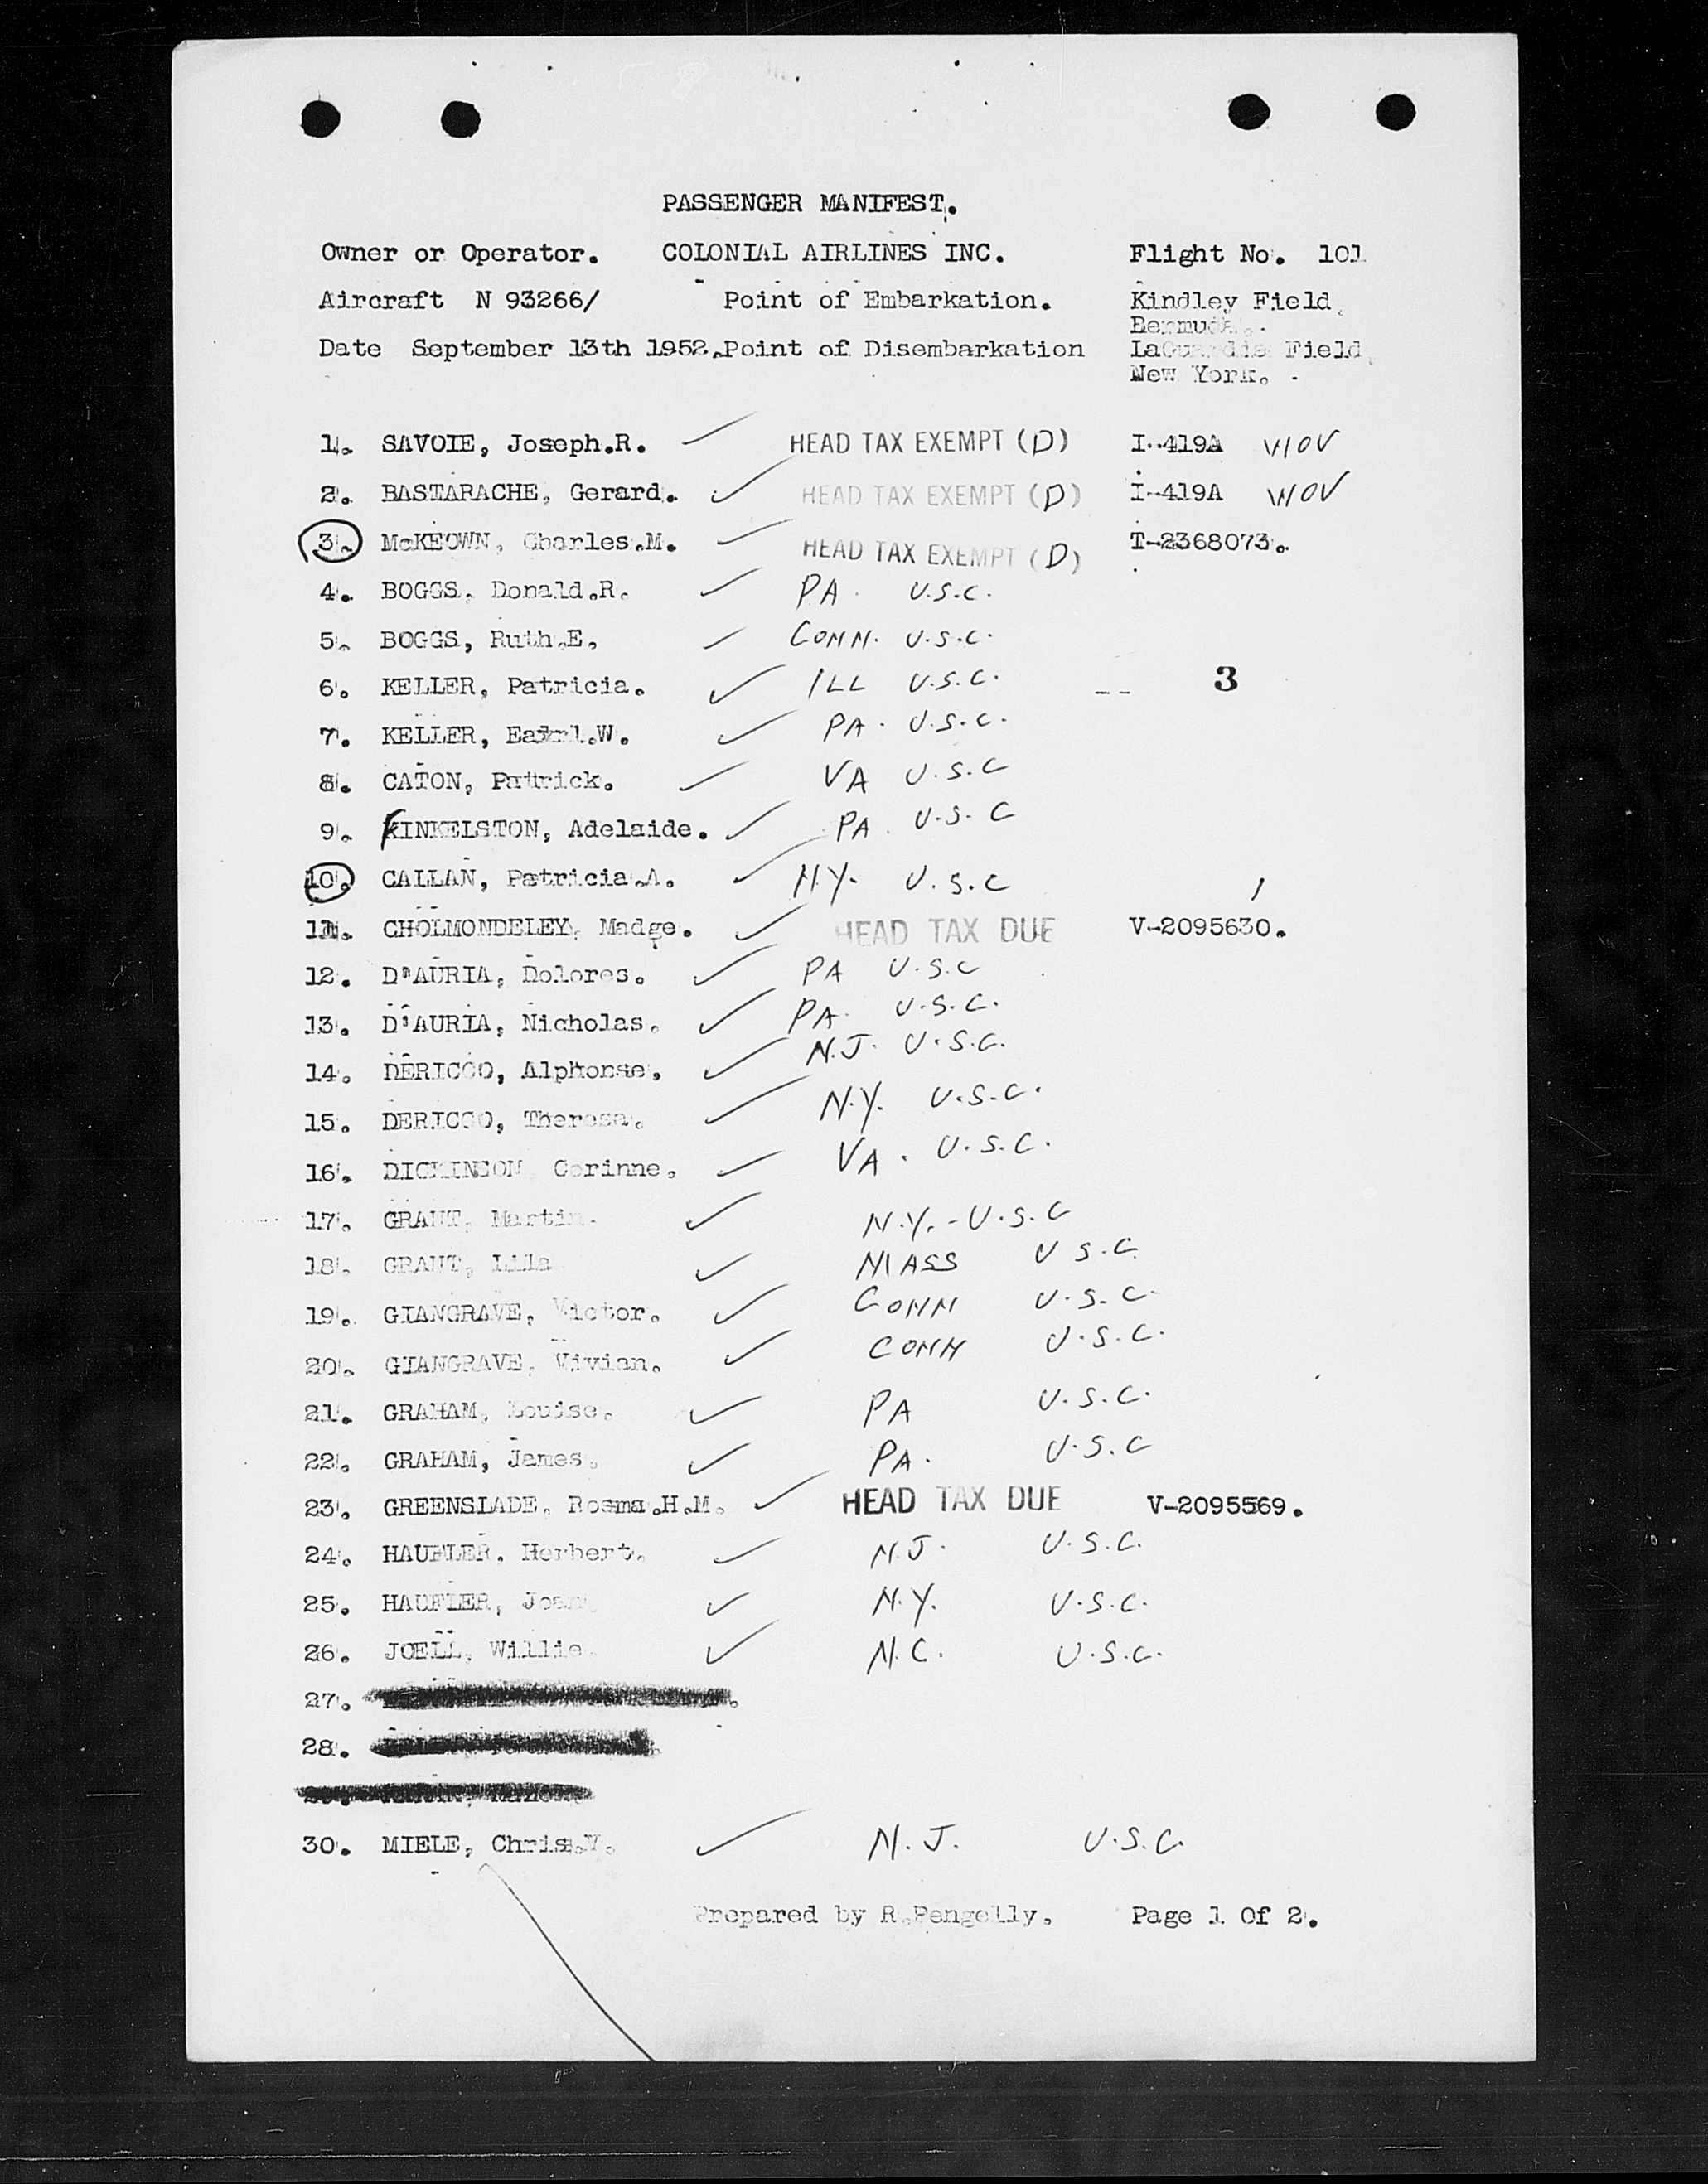 PASSENGER MANIFEST.
Owner or Operator. COLONIAL AIRLINES INC. Flight No. 101
Aircraft N 93266/ Point of Embarkation. Kindley Field,
Bermuda.
Date September 13th 1952. Point of Disembarkation LaGuardia Field,
New York.
1. SAVOIE, Joseph.R. HEAD TAX EXEMPT (D) I-419A WOV
2. BASTARACHE, Gerard. HEAD TAX EXEMPT (D) I-419A WOV
3. McKEOWN, Charles.M. HEAD TAX EXEMPT (D) T-2368073.
4. BOGGS, Donald.R. PA. U.S.C.
5. BOGGS, Ruth.E. CONN. U.S.C.
6. KELLER, Patricia. ILL U.S.C. -- 3
7. KELLER, Earl.W. PA. U.S.C.
8. CATON, Patrick. VA U.S.C
9. FINKELSTON, Adelaide. PA. U.S.C
10. CALLAN, Patricia.A. N.Y. U.S.C 1
11. CHOLMONDELEY, Madge. HEAD TAX DUE V-2095630.
12. D'AURIA, Dolores. PA U.S.C
13. D'AURIA, Nicholas. PA. U.S.C.
14. DERICCO, Alphonse. N.J. U.S.C.
15. DERICCO, Theresa. N.Y. U.S.C.
16. DICKINSON Corinne. VA. U.S.C.
17. GRANT, Martin. N.Y. - U.S.C
18. GRANT, Lila MASS U S.C.
19. GIANGRAVE, Victor. CONN U.S.C.
20. GIANGRAVE, Vivian. CONN U.S.C.
21. GRAHAM, Louise. PA U.S.C.
22. GRAHAM, James. PA. U.S.C
23. GREENSLADE, Rosma.H.M. HEAD TAX DUE V-2095569.
24. HAUFLER. Herbert. N.J. U.S.C.
25. HAUFLER, Joan N.Y. U.S.C.
26. JOELL, Willie. N.C. U.S.C.
27.
28.
30. MIELE, Chris.V. N.J. U.S.C.
Prepared by R.Pengelly. Page 1 Of 2.